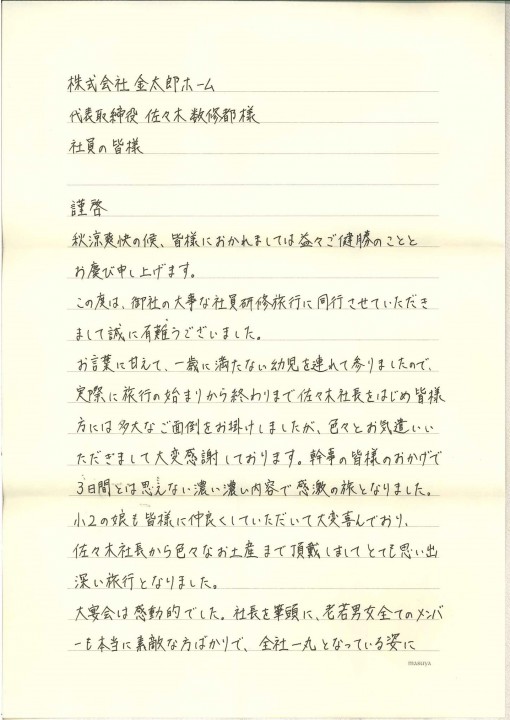 株式会社 金太郎ホーム
代表取締役 佐々木 数修都 様
社員の皆様
謹啓
秋涼爽快の候、皆様におかれましては益々ご健勝のことと
お慶び申し上げます。
この度は、御社の大事な社員研修旅行に同行させていただき
まして誠に有難うございました。
お言葉に甘えて、一歳に満たない幼児を連れて参りましたので、
実際に旅行の始まりから終わりまで佐々木社長をはじめ皆様
方には多大なご面倒をお掛けしましたが、色々とお気遣いい
ただきまして大変感謝しております。幹事の皆様のおかげで
3日間とは思えない濃い濃い内容で感激の旅となりました。
小2の娘も皆様に仲良くしていただいて大変喜んでおり、
佐々木社長から色々なお土産まで頂戴しましてとても思い出
深い旅行となりました。
大宴会は感動的でした。社長を筆頭に、老若男女全てのメンバ
ーも本当に素敵な方ばかりで、全社一丸となっている姿に
masuya